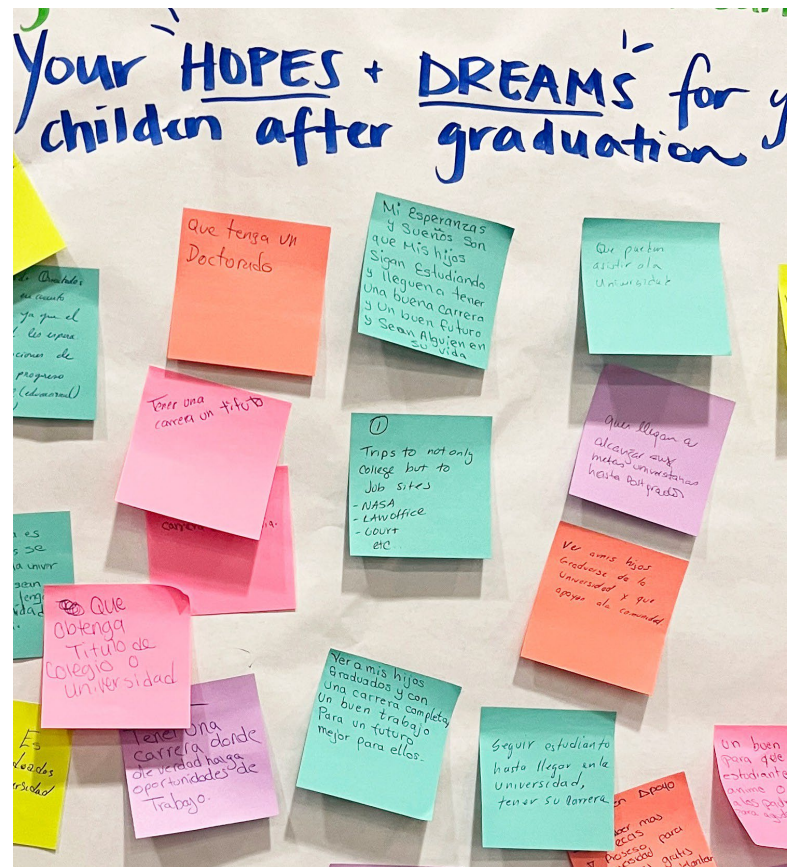 Your HOPES + DREAMS for y
childen after graduation
Que tenga un
Doctorado
Mi Esperanzas
y Sueños Son
que Mis hijos
Sigan Estudiando
y lleguen a tener
una buena carrera
y Un buen futuro
y Sean Alguien en
su vida
Que puedan
asistir ala
Universidad
ya que el
progreso
Tener una
carrera un titulo
①
Trips to not only
College but to
Job sites
- NASA
- LAW office
- Court
etc...
que llegan a
alcanzar sus
metas universitarias
hasta Postgrados
carrera
Ver amis hijos
Graduarse de la
Universidad y que
apoyen ala comunidad.
es
se
a univer
sean
Que
obtenga
Titulo de
colegio o
universidad
Tener una
carrera donde
de verdad haiga
oportunidades de
Trabajo.
Ver a mis hijos
Graduados y con
una carrera completa,
un buen trabajo
Para un futuro
mejor para ellos.
Seguir estudianto
hasta llegar en la
universidad,
tener su carrera
Es
rsidad
un buen
para que
estudiante
anime o
Apoyo
mas
para
gratis